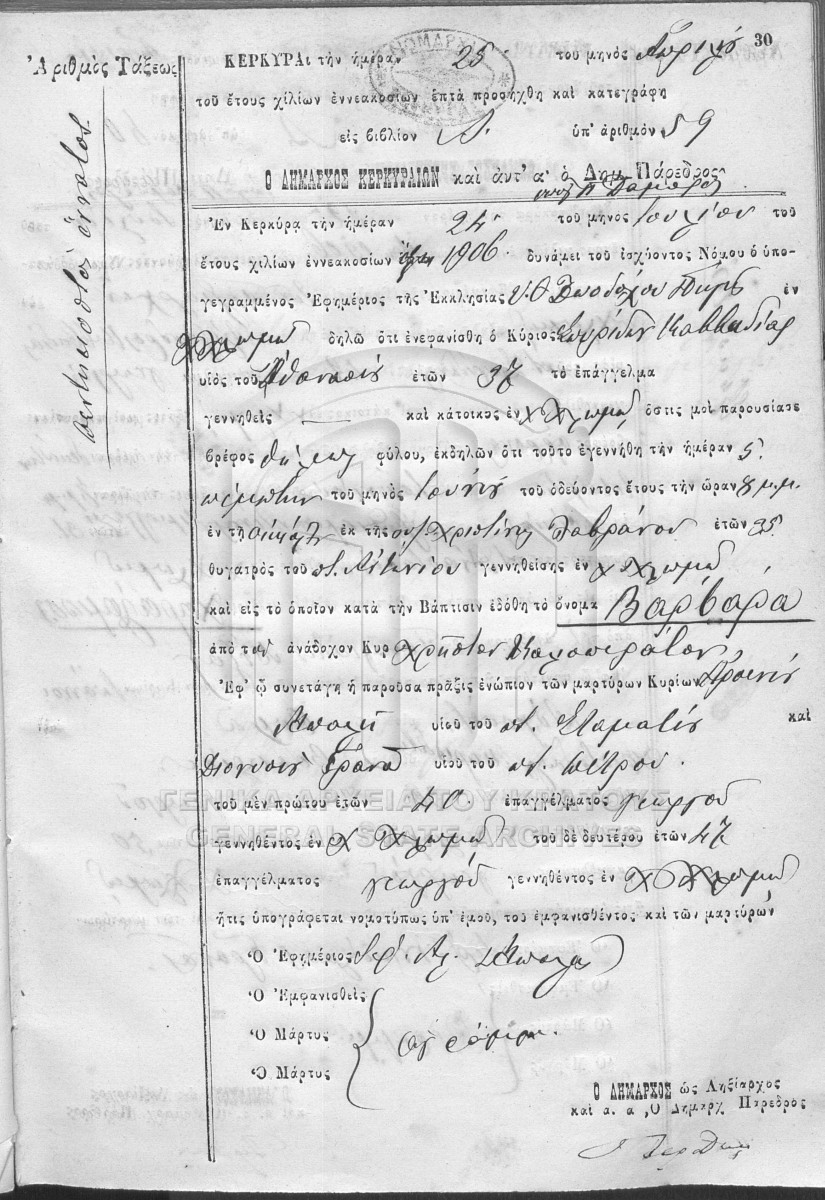 30
Ἀριθμὸς Τάξεως
πεντηκοστὸς ἔννατος
ΚΕΡΚΥΡΑι τὴν ἡμέραν 25 τοῦ μηνὸς
τοῦ ἔτους χιλίων ἐννεακοσίων ἑπτὰ προσήχθη καὶ κατεγράφη
εἰς βιβλίον Α. ὑπ' ἀριθμὸν 59
Ο ΔΗΜΑΡΧΟΣ ΚΕΡΚΥΡΑΙΩΝ καὶ ἀντ' α' ὁ Δημ. Πάρεδρος
Ἐν Κερκύρᾳ τὴν ἡμέραν 24 τοῦ μηνὸς Ἰουλίου τοῦ
ἔτους χιλίων ἐννεακοσίων 1906 δυνάμει τοῦ ἰσχύοντος Νόμου ὁ ὑπο-
γεγραμμένος Ἐφημέριος τῆς Ἐκκλησίας Υ. Θ. ἐν
Χλωμῷ δηλῶ ὅτι ἐνεφανίσθη ὁ Κύριος Σπυρίδων Καββαδίας
υἱὸς τοῦ Ἀθανασίου ἐτῶν 37 τὸ ἐπάγγελμα
γεννηθεὶς — καὶ κάτοικος ἐν Χλωμῷ ὅστις μοὶ παρουσίασε
βρέφος θήλεος φύλου, ἐκδηλῶν ὅτι τοῦτο ἐγεννήθη τὴν ἡμέραν 5
πέμπτην τοῦ μηνὸς τοῦ ὁδεύοντος ἔτους τὴν ὥραν 8 μ.μ.
ἐν τῇ οἰκίᾳ ἐκ τῆς συζ. Χριστίνης Λαβράνου ἐτῶν 35
θυγατρὸς τοῦ π. Ἀντωνίου γεννηθείσης ἐν Χλωμῷ
καὶ εἰς τὸ ὁποῖον κατὰ τὴν Βάπτισιν ἐδόθη τὸ ὄνομα Βαρβάρα
ἀπὸ τὸν ἀνάδοχον Κυρ Χρῆστον
Ἐφ' ᾧ συνετάγη ἡ παροῦσα πρᾶξις ἐνώπιον τῶν μαρτύρων Κυρίων
Μπαλῆ υἱοῦ τοῦ π. Σταματίου καὶ
Διονυσίου υἱοῦ τοῦ π. Πέτρου
ΓΕΝΙΚΑ ΑΡΧΕΙΑ ΤΟΥ ΚΡΑΤΟΥΣ
τοῦ μὲν πρώτου ἐτῶν 40 ἐπαγγέλματος γεωργοῦ
GENERAL STATE ARCHIVES
γεννηθέντος ἐν Χλωμῷ τοῦ δὲ δευτέρου ἐτῶν 47
ἐπαγγέλματος γεωργοῦ γεννηθέντος ἐν Χλωμῷ
ἥτις ὑπογράφεται νομοτύπως ὑπ' ἐμοῦ, τοῦ ἐμφανισθέντος καὶ τῶν μαρτύρων
Ὁ Ἐφημέριος
Ὁ Ἐμφανισθεὶς
Ὁ Μάρτυς
Ὁ Μάρτυς
Ο ΔΗΜΑΡΧΟΣ ὡς Ληξίαρχος
καὶ α. α, Ὁ Δημαρχ Πάρεδρος